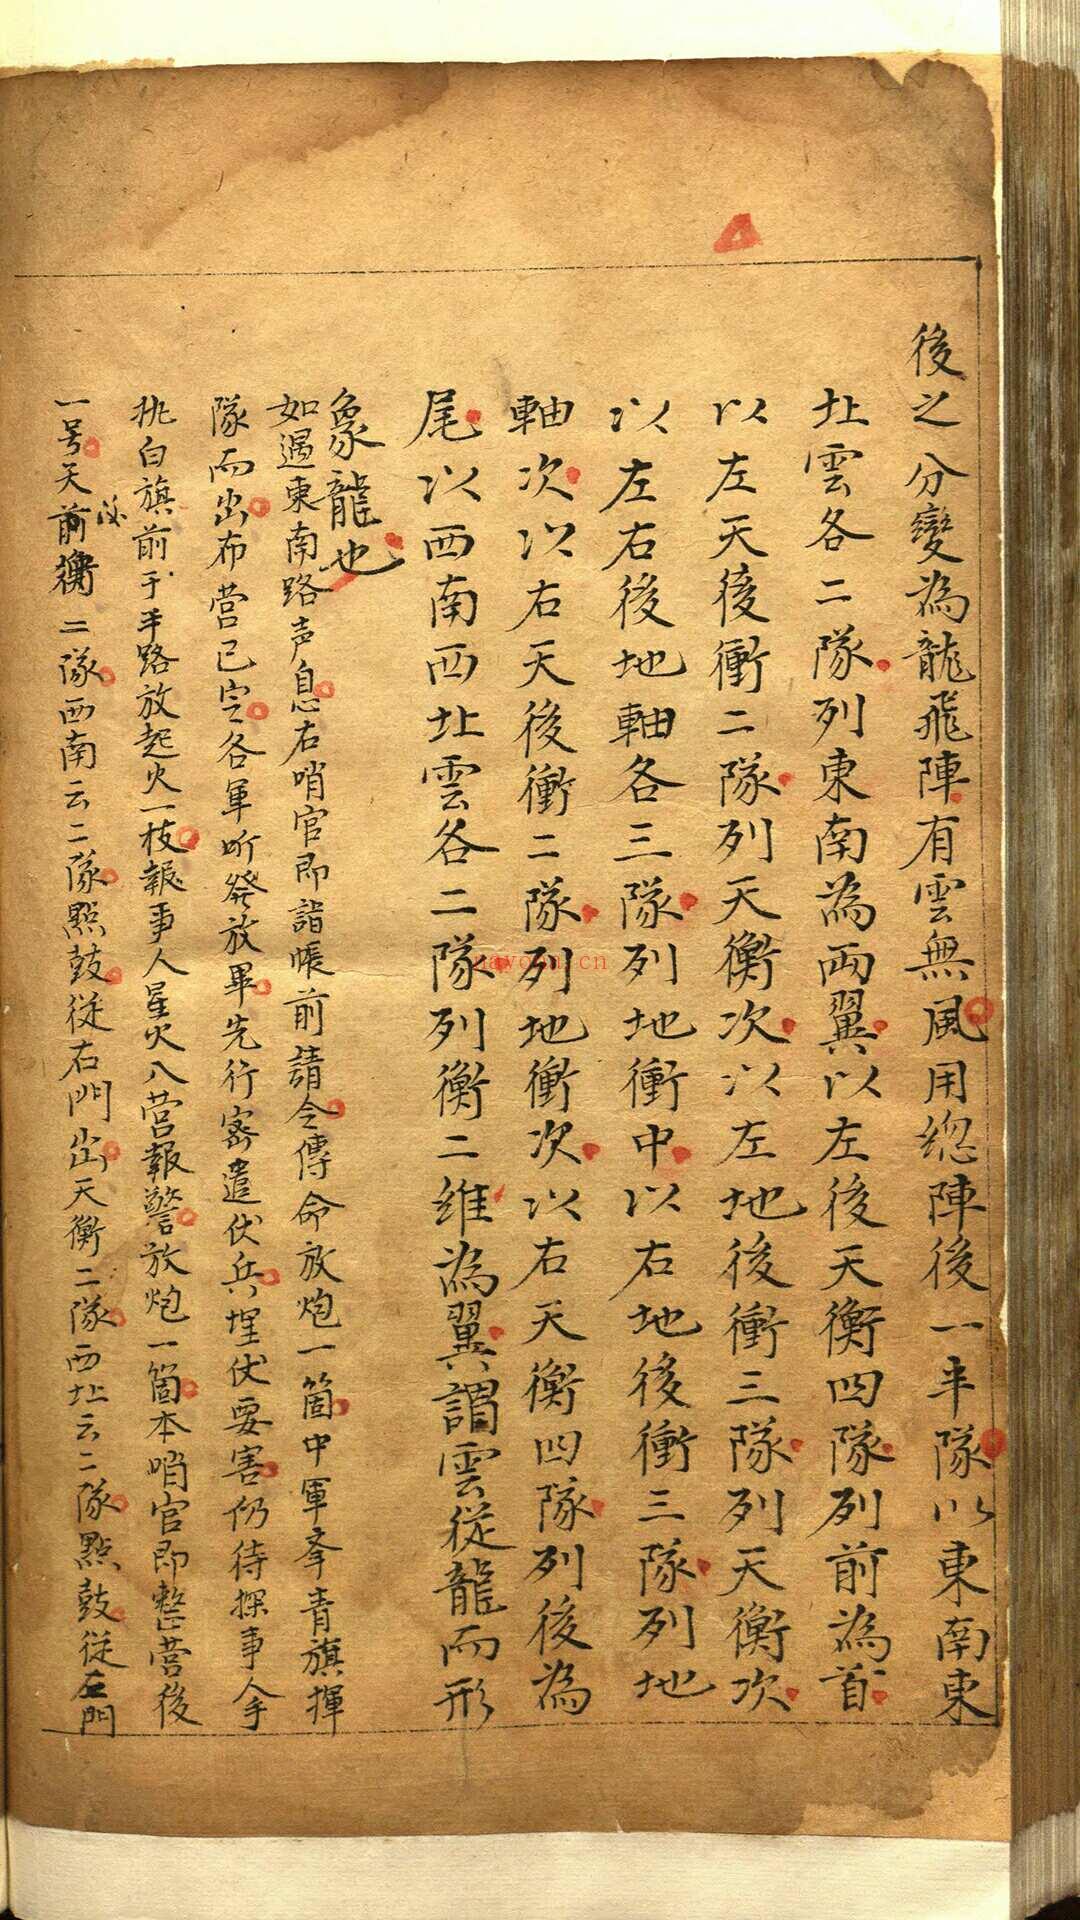 後之分變為龍飛陣有雲無風用緫陣後一半隊以東南東
北雲各二隊列東南為兩翼以左後天衡四隊列前為首
以左天後衝二隊列天衡次以左地後衝三隊列天衡次
以左右後地軸各三隊列地衝中以右地後衝三隊列地
軸次以右天後衝二隊列地衝次以右天衡四隊列後為
尾以西南西北雲各二隊列衡二維為翼謂雲從龍而形
象龍也
如遇東南路声息右哨官即詣帳前請令傳命放炮一箇中軍夆青旗揮
隊而出布营已定各軍听發放畢先行密遣伏兵埋伏要害仍待探事人手
執白旗前于半路放起火一枝報事人星火入营報警放炮一箇本哨官即整营後
一号天前衝二隊西南云二隊點鼓從右門出天衡二隊西北云二隊點鼓從左門